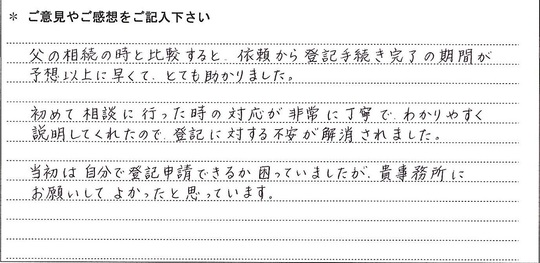 * ご意見やご感想をご記入下さい
父の相続の時と比較すると、依頼から登記手続き完了の期間が
予想以上に早くて、とても助かりました。
初めて相談に行った時の対応が非常に丁寧で、わかりやすく
説明してくれたので、登記に対する不安が解消されました。
当初は自分で登記申請できるか困っていましたが、貴事務所に
お願いしてよかったと思っています。